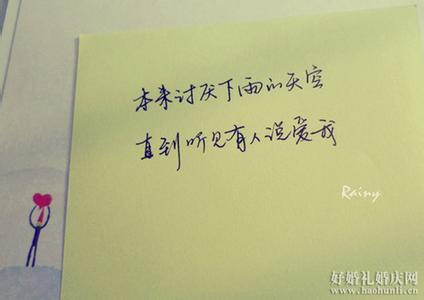 本来讨厌下雨的天空
直到听见有人说爱我
Rainy
好婚礼婚庆网
www.haohunli.cn